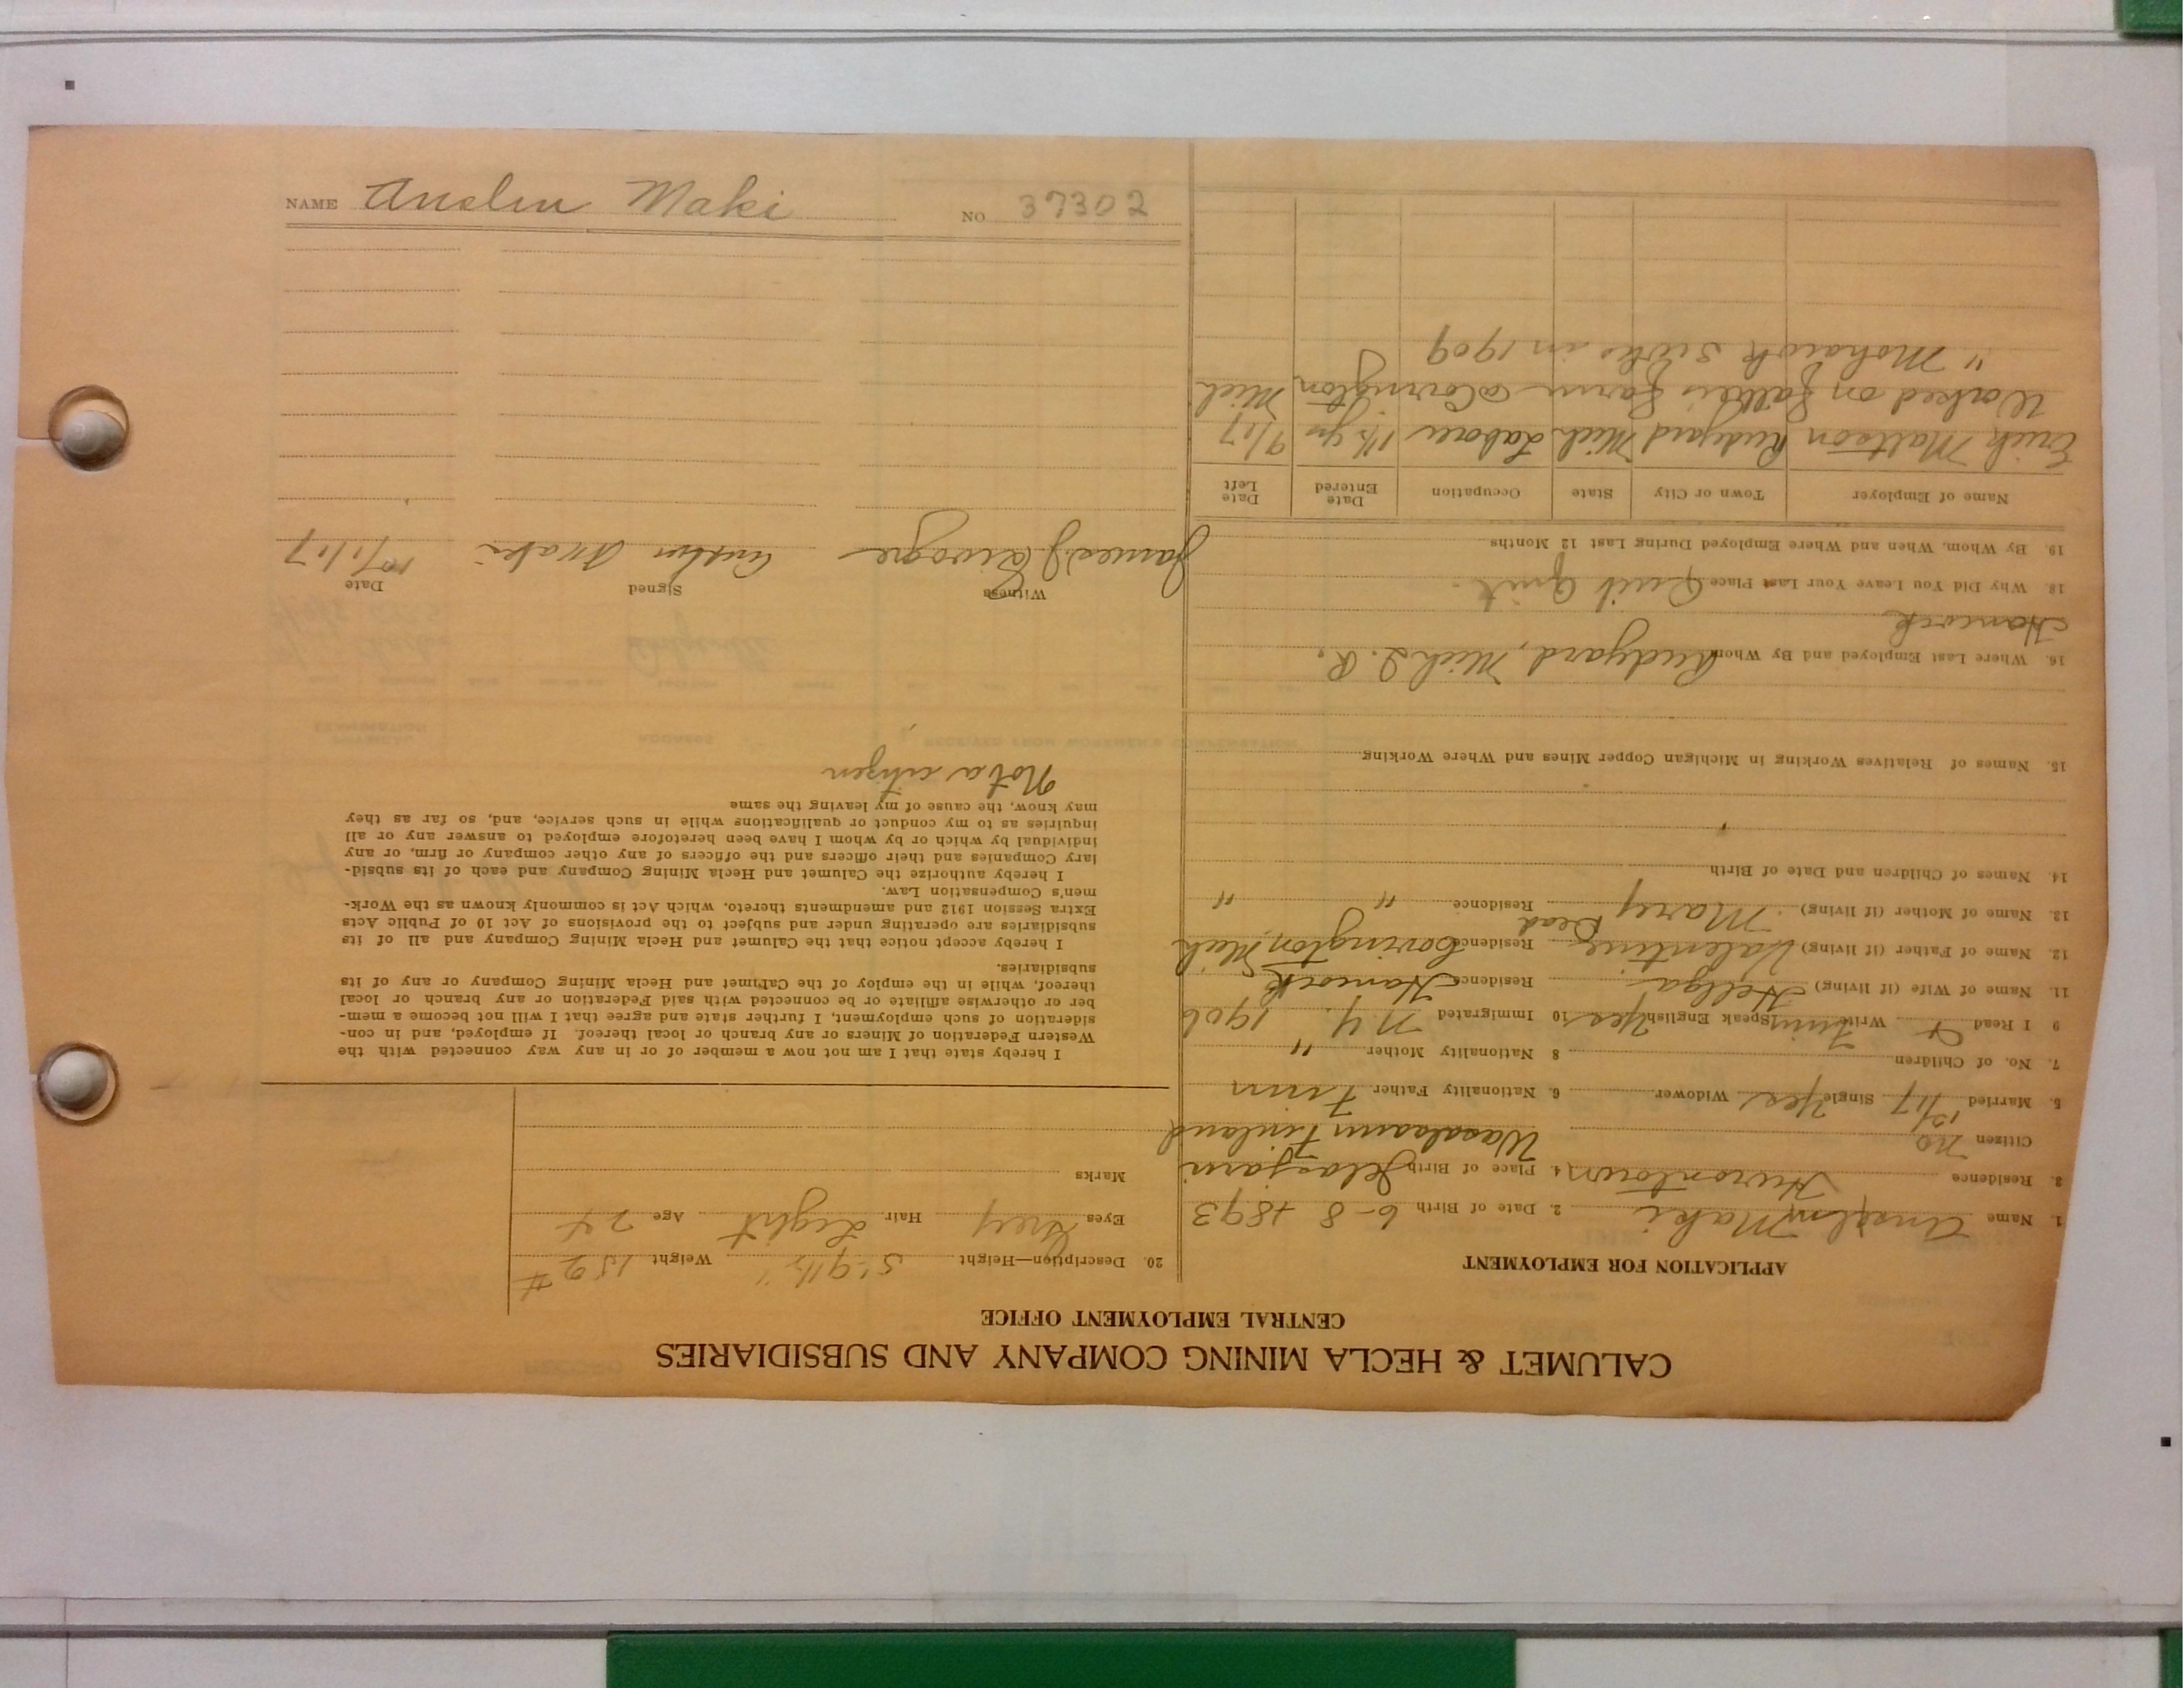 CALUMET & HECLA MINING COMPANY AND SUBSIDIARIES
CENTRAL EMPLOYMENT OFFICE
APPLICATION FOR EMPLOYMENT
1. Name Anselm Maki 2. Date of Birth 6-8 1893
3. Residence Hurontown 4. Place of Birth Jelasjarvi
Citizen no Wasalaani Finland
5. Married 10/17 Single Yes Widower 6. Nationality Father Finn
7. No. of Children 8 Nationality Mother "
9 I Read & Write Finn Speak English Yes 10 Immigrated N.Y. 1906
11. Name of Wife (if living) Hellga Residence Hancock
12. Name of Father (if living) Valentine Residence Covington, Mich
Dead
13. Name of Mother (if living) Marey Residence " "
14. Names of Children and Date of Birth
15. Names of Relatives Working in Michigan Copper Mines and Where Working
16. Where Last Employed and By Whom Rudyard, Mich Q. R.
Hancock
18. Why Did You Leave Your Last Place Quit Quit
19. By Whom, When and Where Employed During Last 12 Months
Name of Employer Town or City State Occupation Date Entered Date Left
Erick Mattson Rudyard Mich Laborer 1½ yr 9/17
Worked on Father's Farm @ Covington, Mich
" Mohawk 3 wks in 1909
20. Description—Height 5' 9½" Weight 152 #
Eyes Grey Hair Light Age 24
Marks
I hereby state that I am not now a member of or in any way connected with the
Western Federation of Miners or any branch or local thereof. If employed, and in con-
sideration of such employment, I further state and agree that I will not become a mem-
ber or otherwise affiliate or be connected with said Federation or any branch or local
thereof, while in the employ of the Calumet and Hecla Mining Company or any of its
subsidiaries.
I hereby accept notice that the Calumet and Hecla Mining Company and all of its
subsidiaries are operating under and subject to the provisions of Act 10 of Public Acts
Extra Session 1912 and amendments thereto, which Act is commonly known as the Work-
men's Compensation Law.
I hereby authorize the Calumet and Hecla Mining Company and each of its subsid-
iary Companies and their officers and the officers of any other company or firm, or any
individual by which or by whom I have been heretofore employed to answer any or all
inquiries as to my conduct or qualifications while in such service, and, so far as they
may know, the cause of my leaving the same
Not a citizen
Witness Signed Date
James J Maki 10/1/17
NAME Anslem Maki NO 37302